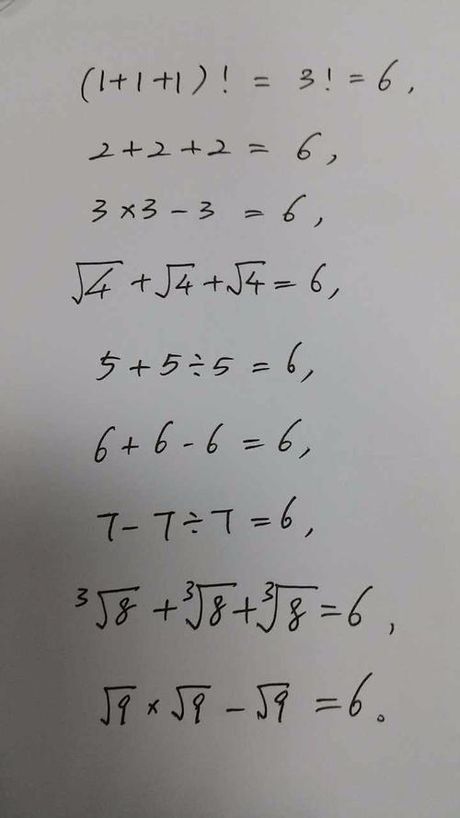 (1+1+1)! = 3! = 6,
2+2+2 = 6,
3×3-3 = 6,
√4+√4+√4 = 6,
5+5÷5 = 6,
6+6-6 = 6,
7-7÷7 = 6,
³√8+³√8+³√8 = 6,
√9×√9-√9 = 6。